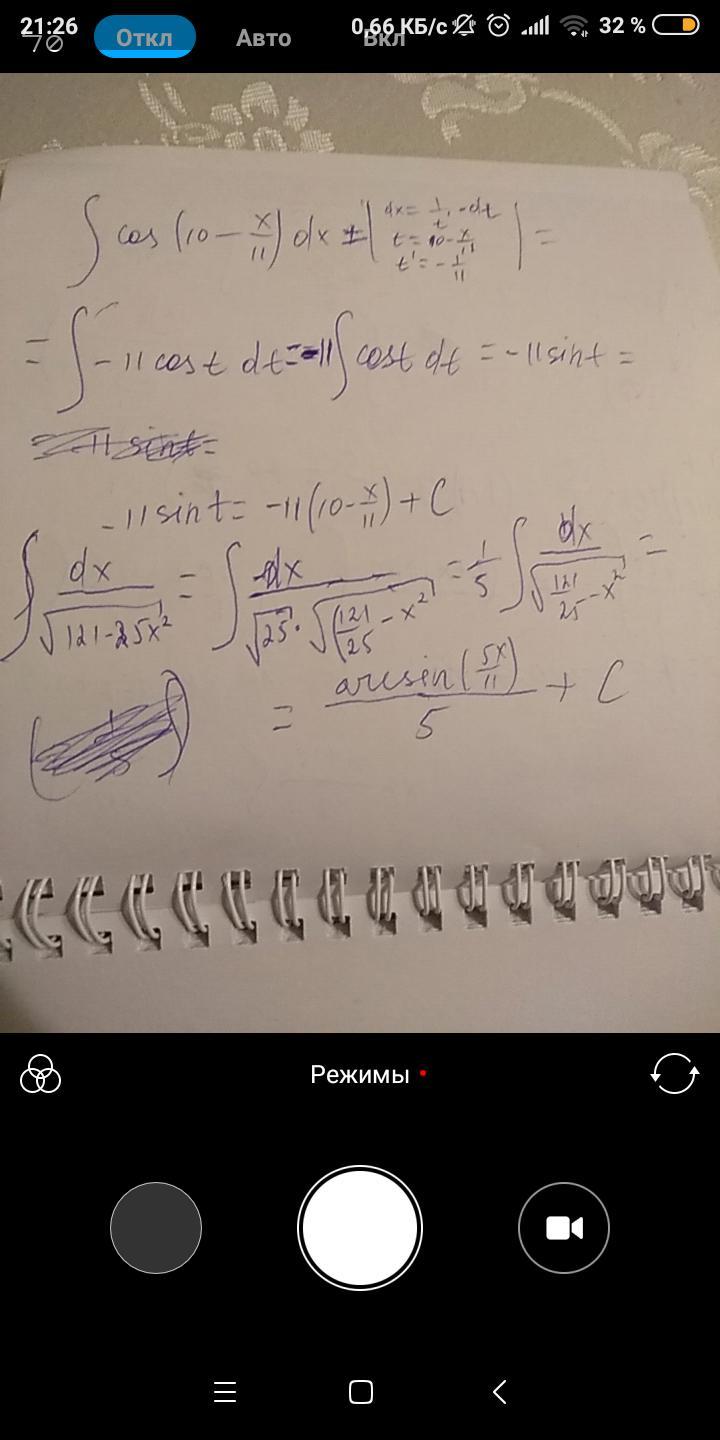 21:26 0,66 КБ/с 32 %
Откл Авто Вкл
∫ cos (10 − x/11) dx = | dx = 1/t' · dt
t = 10 − x/11
t' = − 1/11 | =
= ∫ −11 cos t dt = −11 ∫ cos t dt = −11 sin t =
−11 sin t = −11 (10 − x/11) + C
∫ dx/√(121−25x²) = ∫ dx/(√25 · √(121/25 − x²)) = 1/5 ∫ dx/√(121/25 − x²) =
= arcsin(5x/11)/5 + C
Режимы